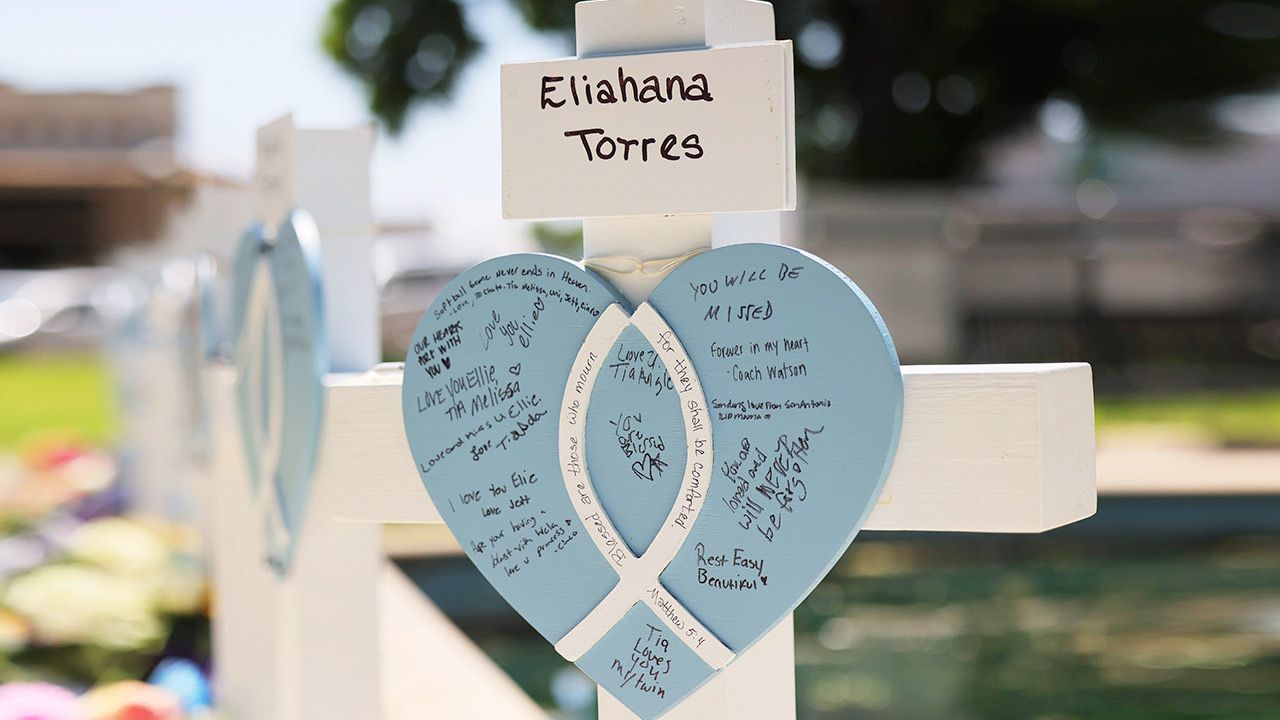 Eliahana
Torres
Softball Game Never ends in Heaven
OUR HEARTS
ARE WITH
YOU
Love
you
Ellie
LOVE YOU Ellie
TIA Melissa
Love and miss U Ellie.
Love
I love You Elie
Love Jett
love u princess
Blessed are those who mourn
for they shall be comforted
Matthew 5:4
Love U
Tia Angie
YOU WILL BE
MISSED
Forever in my heart
-Coach Watson
Sending love from San Antonio
You are
loved and
will NEVER
be forgotten
Rest Easy
Beautiful
Tia
Loves
you
my twin